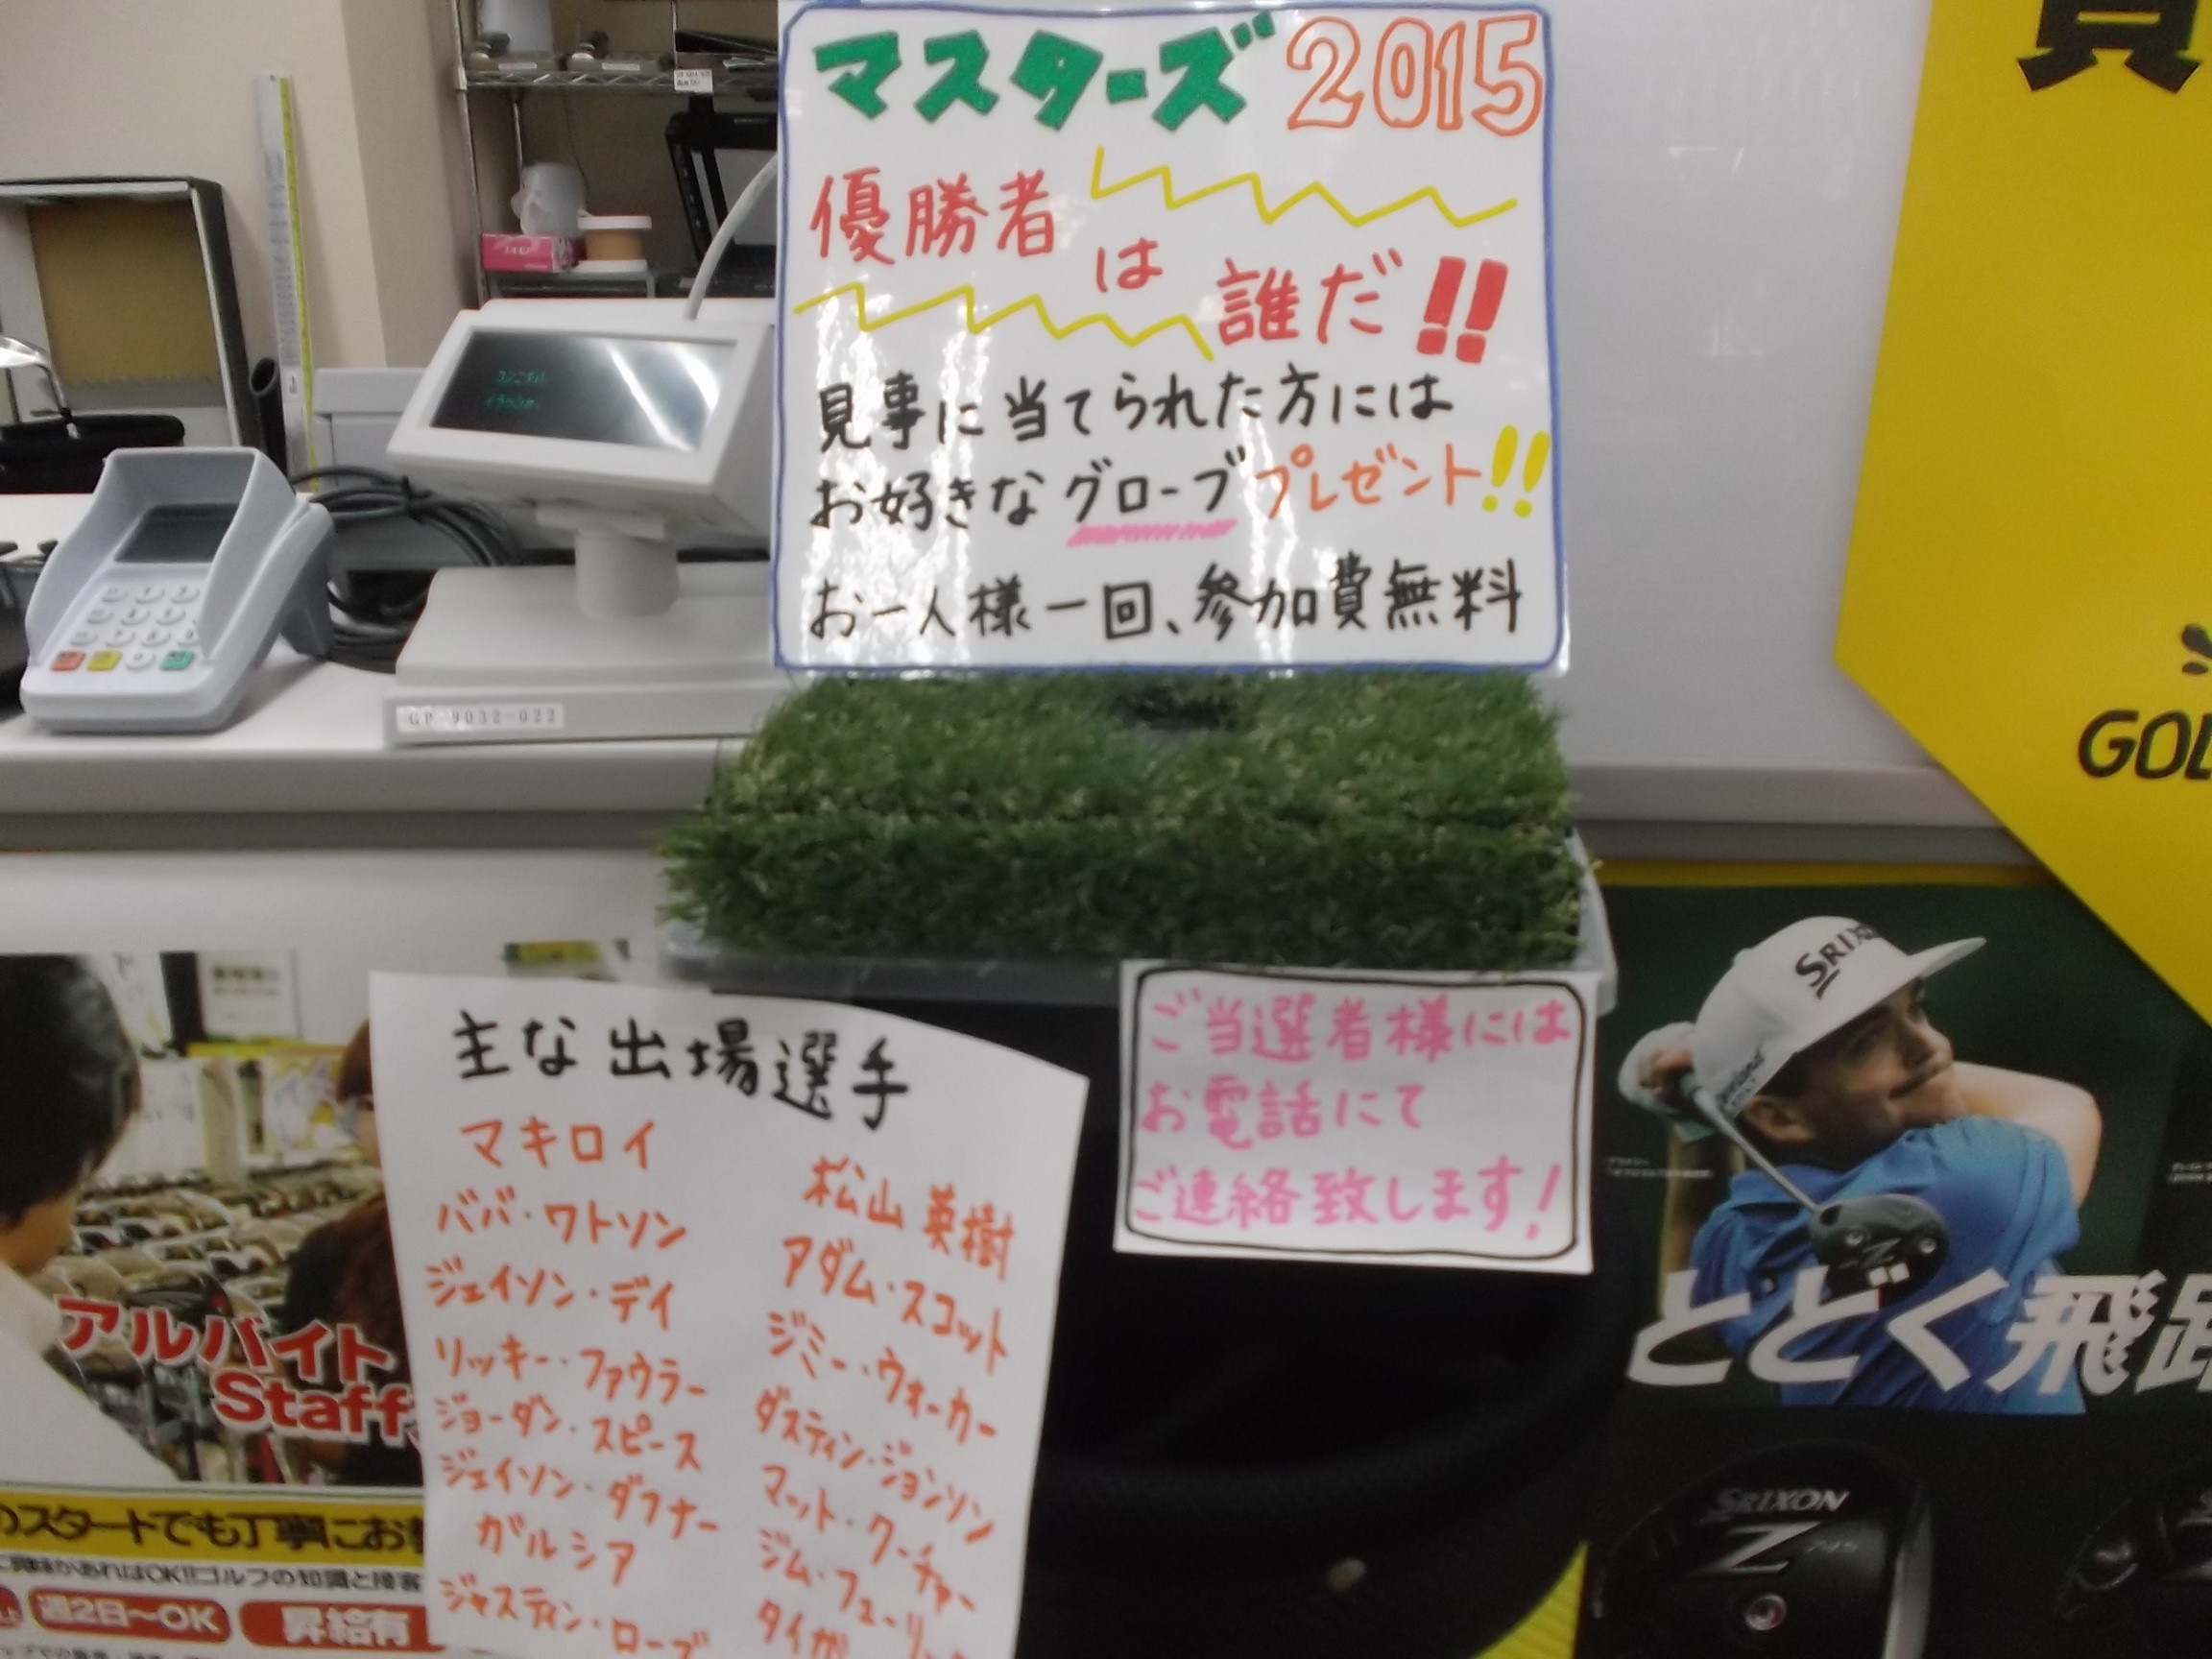 マスターズ 2015
優勝者は誰だ!!
見事に当てられた方には
お好きなグローブプレゼント!!
お一人様一回、参加費無料
GP-9032-022
GOL
ご当選者様には
お電話にて
ご連絡致します!
主な出場選手
マキロイ
ババ・ワトソン
ジェイソン・デイ
リッキー・ファウラー
ジョーダン・スピース
ジェイソン・ダフナー
ガルシア
ジャスティン・ローズ
松山 英樹
アダム・スコット
ジミー・ウォーカー
ダスティン・ジョンソン
マット・クーチャー
ジム・フューリック
タイガー
アルバイト
Staff
のスタートでも丁寧にお
興味があればOK!!ゴルフの知識と接客
週2日〜OK
昇給有
SRIXON
とどく飛距
SRIXON
Z